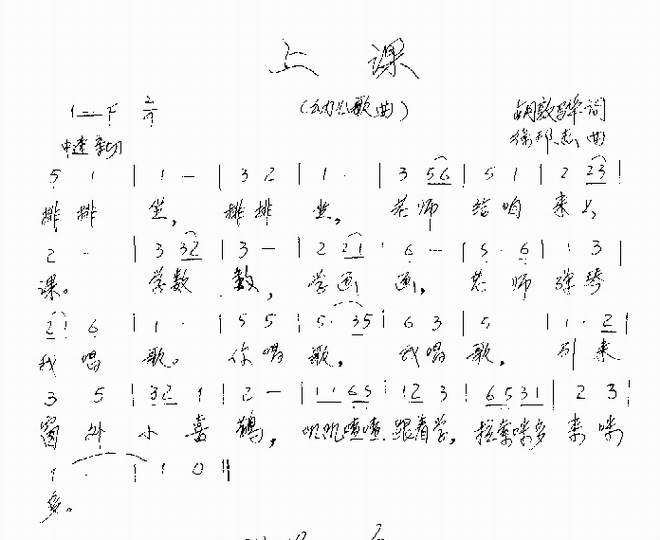 上 课
（幼儿歌曲）
1=F 2/4 胡敦骅词
中速 亲切 徐邦杰曲
5 1 | 1 - | 3 2 | 1 · | 3 56 | 5 1 | 2 23 |
排排 坐， 排排 坐， 老师 给咱 来上
2 - | 3 32 | 3 - | 2 21 | 6 - | 5 · 6 | 1 3 |
课。 学数 数， 学画 画， 老 师 弹琴
2 6 | 1 · | 5 5 | 5 · 35 | 6 3 | 5 | 1 · 2 |
我 唱 歌。 你唱 歌， 我唱 歌， 引 来
3 5 | 32 1 | 2 - | 1165 | 12 3 | 6531 | 2 3 |
窗 外 小 喜 鹊， 叽叽喳喳 跟着学， 拉索咪多 来 咪
1 · | 1 0 ‖
多。